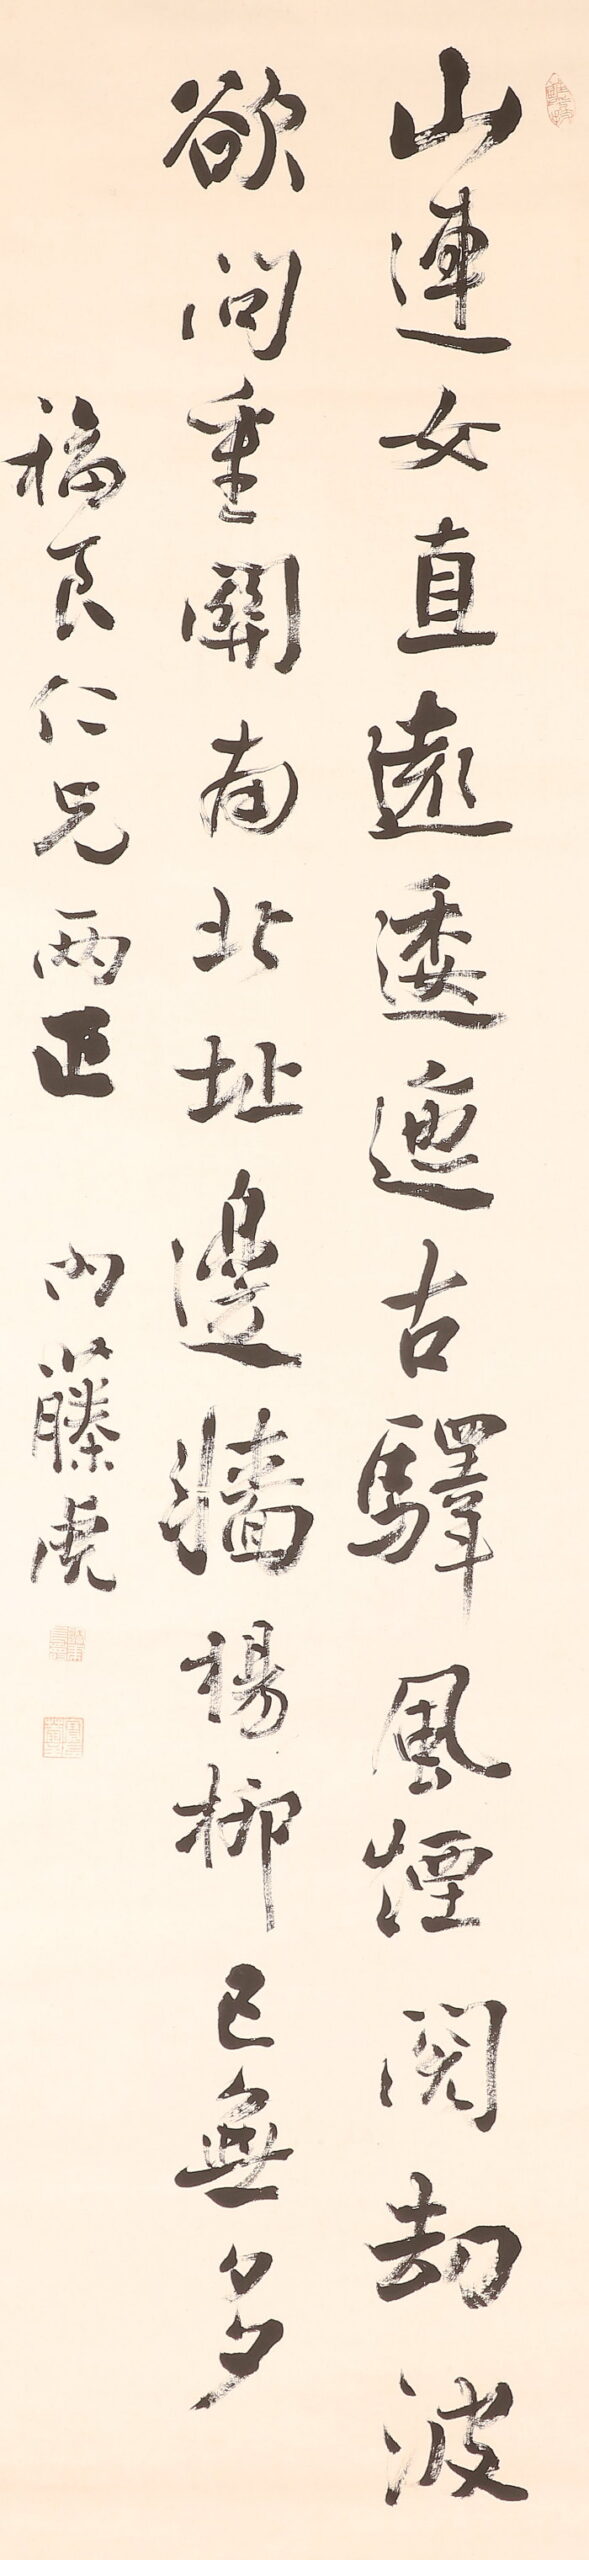 山連女直遠逶迤古驛風煙閱劫波
欲問重關南北址邊牆楊柳已無多
福良仁兄兩正 內藤虎